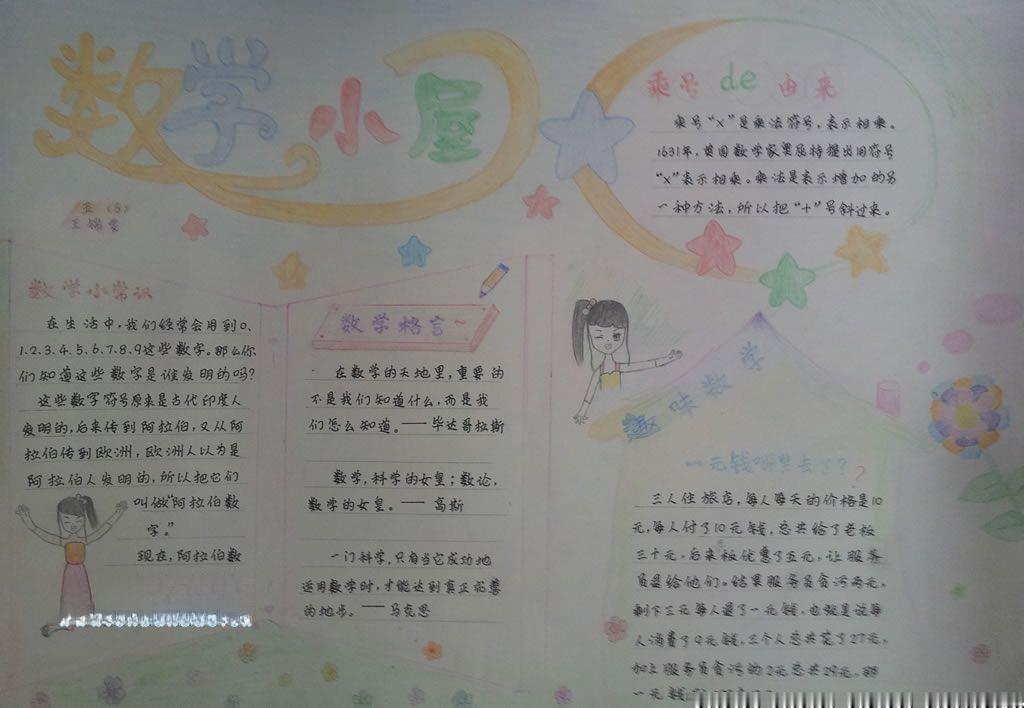 数学小屋
五（6）
数学小常识
在生活中，我们经常会用到0、
1.2.3.4.5.6.7.8.9这些数字。那么你
们知道这些数字是谁发明的吗？
这些数字符号原来是古代印度人
发明的，后来传到阿拉伯，又从阿
拉伯传到欧洲，欧洲人以为是
阿拉伯人发明的，所以把它们
叫做“阿拉伯数
字。”
现在，阿拉伯数
数学格言~
在数学的天地里，重要的
不是我们知道什么，而是我
们怎么知道。——毕达哥拉斯
数学，科学的女皇；数论，
数学的女皇。——高斯
一门科学，只有当它成功地
运用数学时，才能达到真正完善
的地步。——马克思
乘号de由来
乘号“×”是乘法符号，表示相乘。
1631年，英国数学家奥屈特提出用符号
“×”表示相乘。乘法是表示增加的另
一种方法，所以把“+”号斜过来。
趣味数学
一元钱哪里去了？？
三人住旅店，每人每天的价格是10
元，每人付了10元钱，总共给了老板
三十元，后老板优惠了五元，让服务
员退给他们。结果服务员贪污两元，
剩下三元每人退了一元钱，也就是说每
人消费了9元钱。三个人总共花了27元，
加上服务员贪污的2元总共29元。那
一元钱